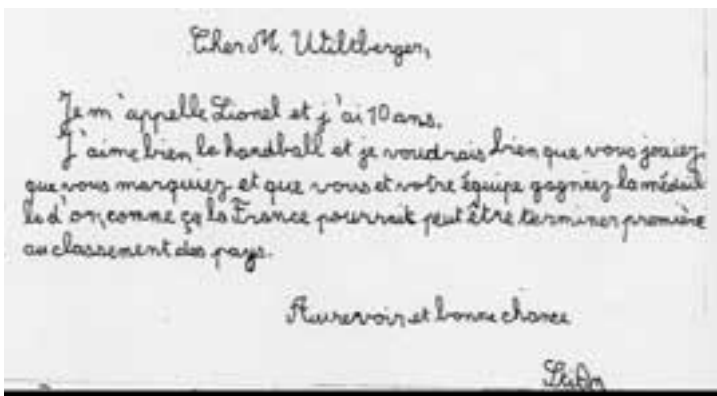 Cher M. Wiltberger,
Je m'appelle Lionel et j'ai 10 ans.
J'aime bien le handball et je voudrais bien que vous jouiez,
que vous marquiez et que vous et votre équipe gagniez la médail
le d'or, comme ça la France pourrait peut être terminer première
au classement des pays.
Au revoir et bonne chance